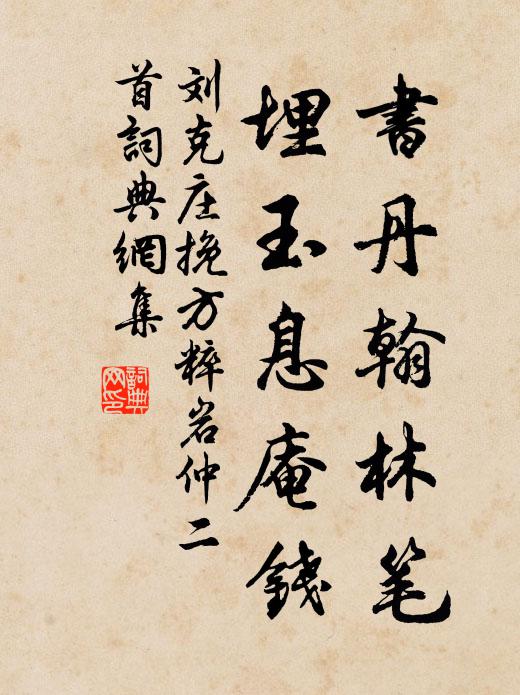 書丹翰林笔
埋玉息庵錢
刘克庄挽方粹岩仲二
首詞典網集
詞典
网印